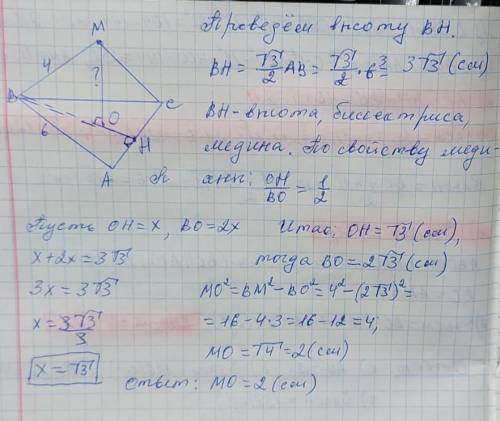 Проведём высоту BH.
BH = √3/2 AB = √3/2 · 6 3 = 3√3 (см)
BH - высота, биссектриса,
медина. По свойству меди-
аны: OH/BO = 1/2
M
4
?
B
O
C
6
H
A
Пусть OH = x, BO = 2x
x + 2x = 3√3
3x = 3√3
x = 3√3/3
x = √3
Итак: OH = √3 (см),
тогда BO = 2√3 (см)
MO² = BM² - BO² = 4² - (2√3)² =
= 16 - 4·3 = 16 - 12 = 4;
MO = √4 = 2 (см)
Ответ: MO = 2 (см)